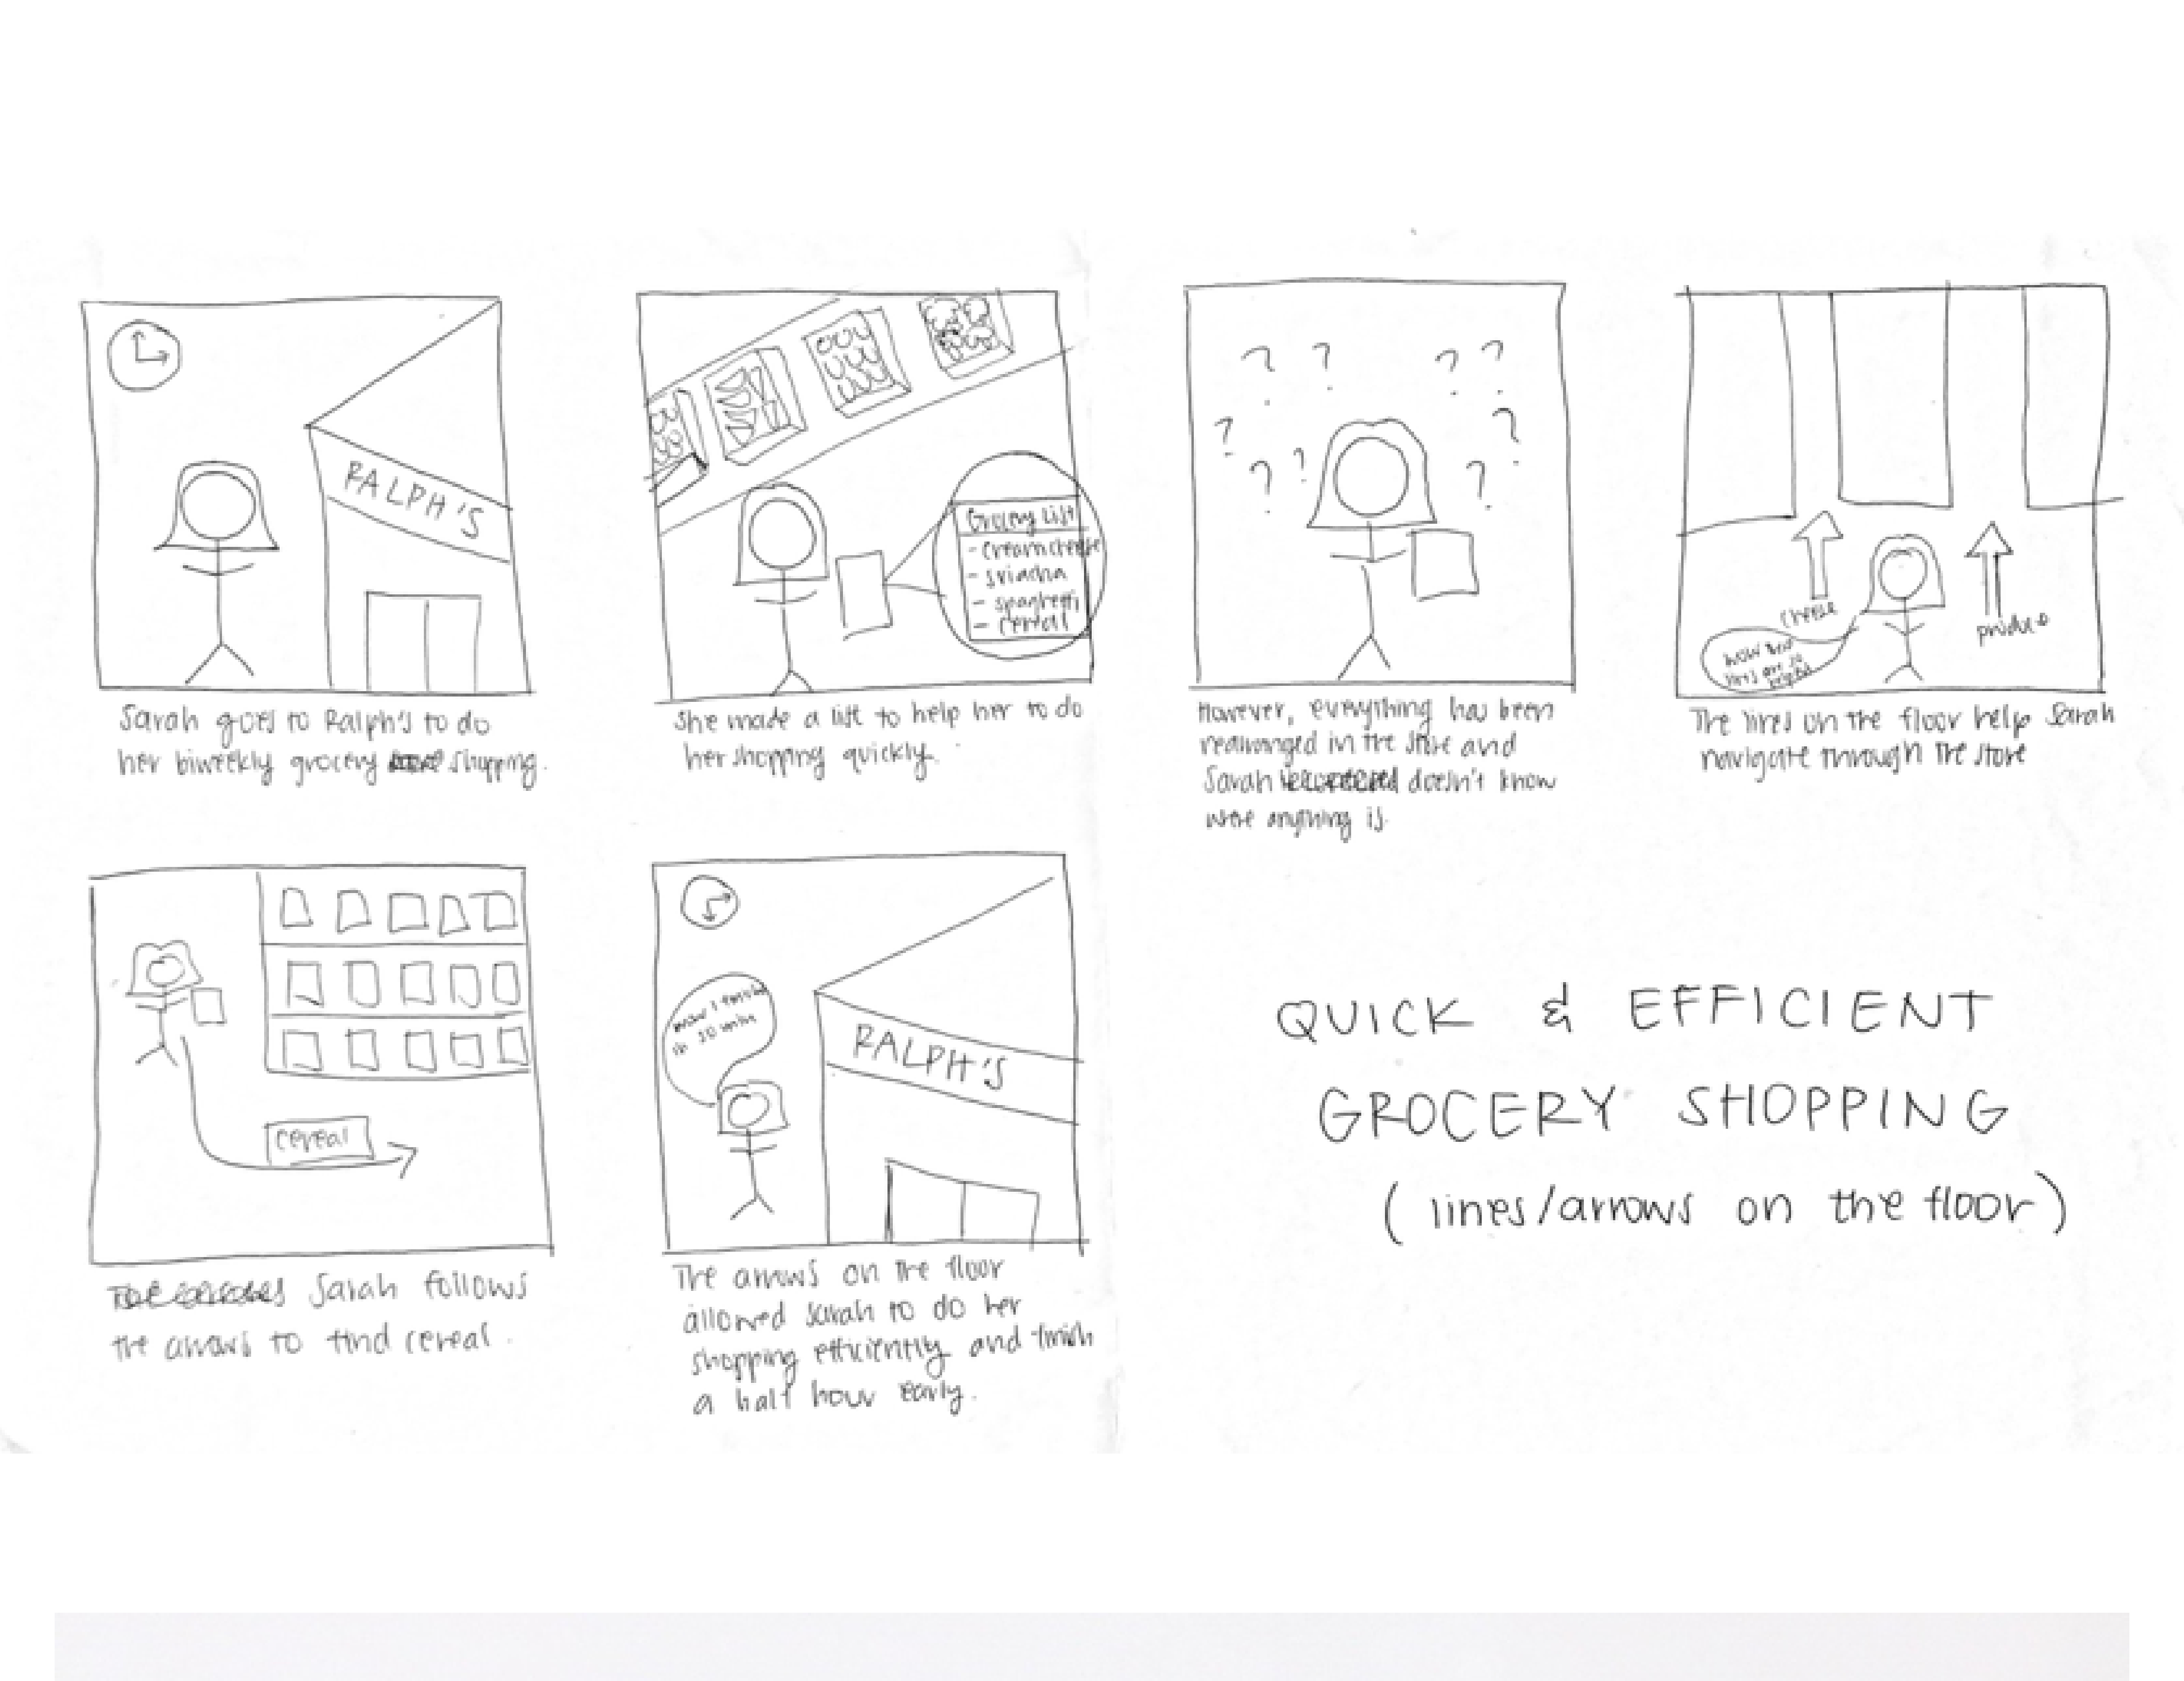 RALPH'S
Sarah goes to Ralph's to do
her biweekly grocery shopping.
Grocery List
- cream cheese
- sriacha
- spaghetti
- cereal
She made a list to help her to do
her shopping quickly.
? ? ? ?
? ?
? ? ?
However, everything has been
rearranged in the store and
Sarah doesn't know
were anything is.
cheese
produce
wow
lines are so
helpful
The lines on the floor help Sarah
navigate through the store
cereal
Sarah follows
the arrows to find cereal.
wow I finished
in 30 mins
RALPH'S
The arrows on the floor
allowed Sarah to do her
shopping efficiently and finish
a half hour early.
QUICK & EFFICIENT
GROCERY SHOPPING
(lines/arrows on the floor)